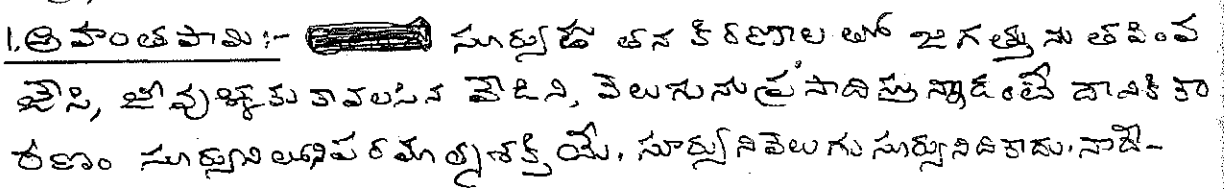 1. అహంతపామి :- సూర్యుడు తన కిరణాల తో జగత్తును తపింప
జేసి, జీవుళ్ళకు కావలసిన వేడిని, వెలుగును ప్రసాదిస్తున్నాడంటే దానికి కా
రణం సూర్యునిలోని పరమాత్మశక్తియే. సూర్యుని వెలుగు సూర్యునిది కాదు. నాదే-